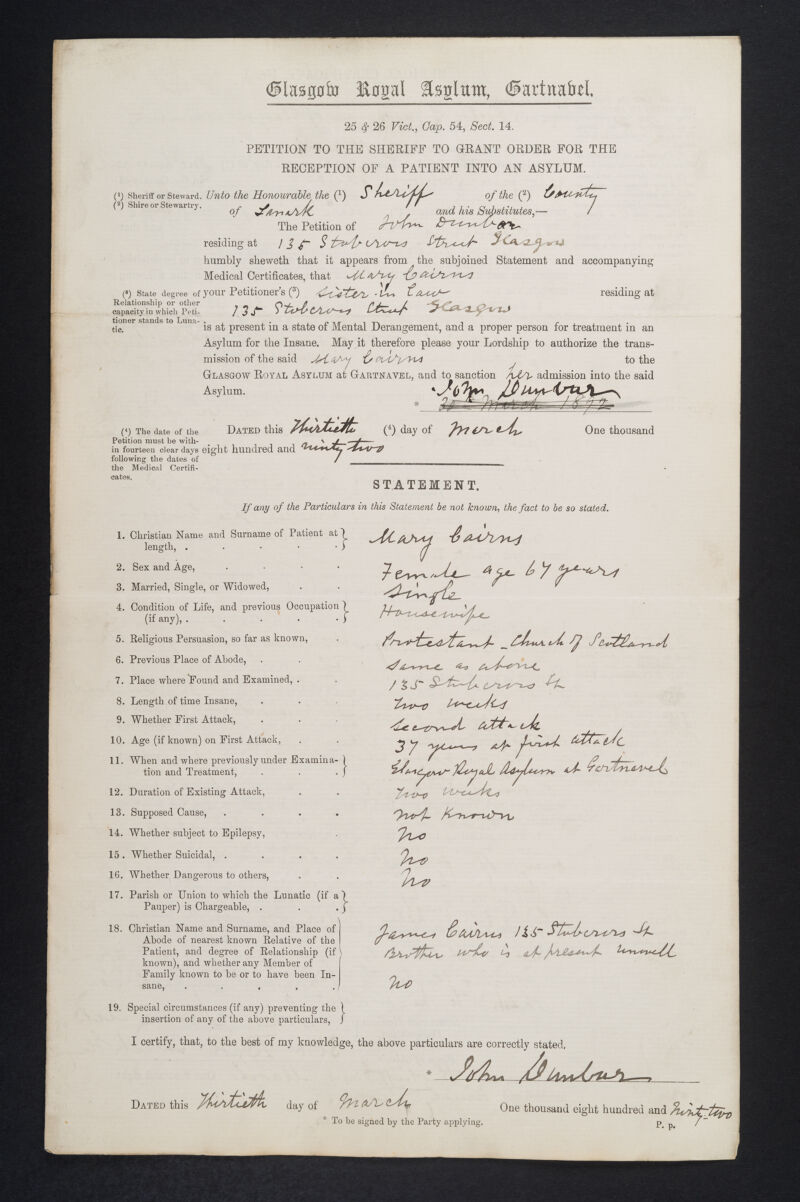 Glasgow Royal Asylum, Gartnavel.
25 & 26 Vict., Cap. 54, Sect. 14.
PETITION TO THE SHERIFF TO GRANT ORDER FOR THE
RECEPTION OF A PATIENT INTO AN ASYLUM.
(1) Sheriff or Steward.
(2) Shire or Stewartry.
Unto the Honourable, the (1) Sheriff of the (2) County
of Lanark and his Substitutes,—
The Petition of John Dunbar
residing at 135 Stobcross Street Glasgow
humbly sheweth that it appears from the subjoined Statement and accompanying
Medical Certificates, that Mary Cairns
(3) State degree of
Relationship or other
capacity in which Peti-
tioner stands to Luna-
tic.
your Petitioner's (3) Sister in Law residing at
135 Stobcross Street Glasgow
is at present in a state of Mental Derangement, and a proper person for treatment in an
Asylum for the Insane. May it therefore please your Lordship to authorize the trans-
mission of the said Mary Cairns to the
GLASGOW ROYAL ASYLUM AT GARTNAVEL, and to sanction her admission into the said
Asylum.
John Dunbar
* 30th March 1892
(4) The date of the
Petition must be with-
in fourteen clear days
following the dates of
the Medical Certifi-
cates.
DATED this Thirtieth (4) day of March One thousand
eight hundred and ninety two
STATEMENT.
If any of the Particulars in this Statement be not known, the fact to be so stated.
1. Christian Name and Surname of Patient at
length, . . . . . Mary Cairns
2. Sex and Age, . . . . Female age 67 years
3. Married, Single, or Widowed, . . Single
4. Condition of Life, and previous Occupation
(if any), . . . . . Housewife
5. Religious Persuasion, so far as known, . Protestant - Church of Scotland
6. Previous Place of Abode, . . same as above
7. Place where Found and Examined, . . 135 Stobcross St
8. Length of time Insane, . . . Two weeks
9. Whether First Attack, . . . Second attack
10. Age (if known) on First Attack, . . 37 years at first attack
11. When and where previously under Examina-
tion and Treatment, . . . Glasgow Royal Asylum at Gartnavel
12. Duration of Existing Attack, . . Two weeks
13. Supposed Cause, . . . . not known
14. Whether subject to Epilepsy, . No
15. Whether Suicidal, . . . . No
16. Whether Dangerous to others, . . No
17. Parish or Union to which the Lunatic (if a
Pauper) is Chargeable, . . .
18. Christian Name and Surname, and Place of
Abode of nearest known Relative of the
Patient, and degree of Relationship (if
known), and whether any Member of
Family known to be or to have been In-
sane, . . . . .
James Cairns 135 Stobcross St
Brother who is at present unwell
No
19. Special circumstances (if any) preventing the
insertion of any of the above particulars,
I certify, that, to the best of my knowledge, the above particulars are correctly stated.
* John Dunbar
DATED this Thirtieth day of March One thousand eight hundred and Ninty-two
* To be signed by the Party applying.
P. p.